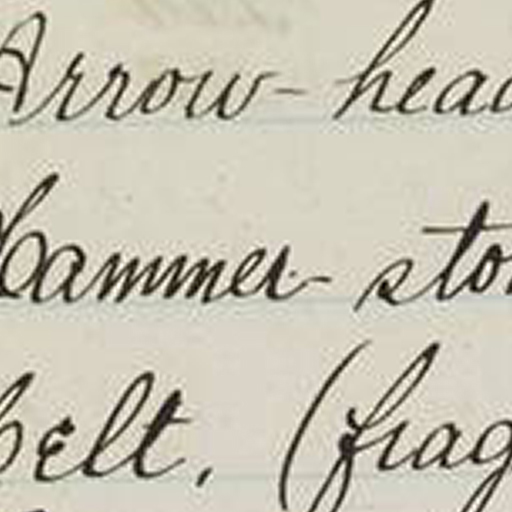 Arrow-head
Hammer-sto
Celt. (frag